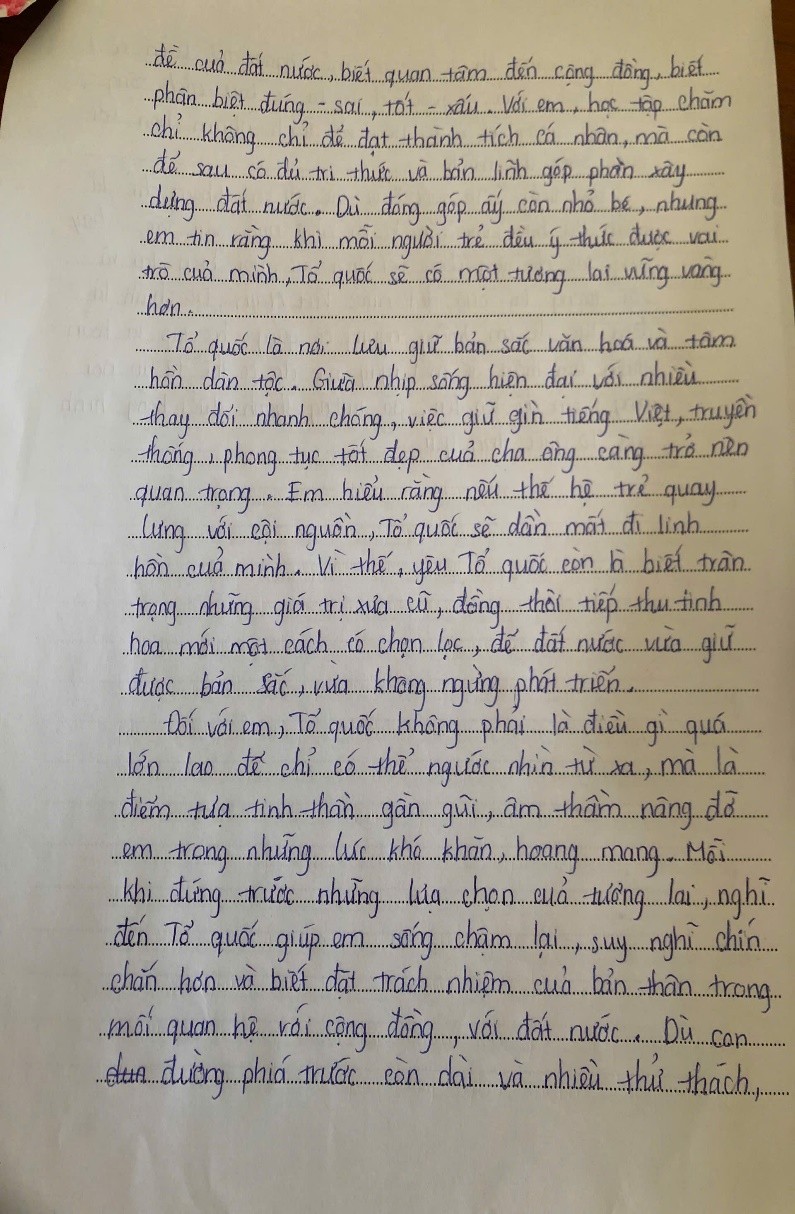 đề cuả đất nước, biết quan tâm đến cộng đồng, biết
phân biệt đúng - sai, tốt - xấu. Với em, học tập chăm
chỉ không chỉ để đạt thành tích cá nhân, mà còn
để sau có đủ tri thức và bản lĩnh góp phần xây
dựng đất nước. Dù đóng góp ấy còn nhỏ bé, nhưng
em tin rằng khi mỗi người trẻ đều ý thức được vai
trò cuả mình, Tổ quốc sẽ có một tương lai vững vàng
hơn.
Tổ quốc là nơi lưu giữ bản sắc văn hoá và tâm
hồn dân tộc. Giưã nhịp sống hiện đại với nhiều
thay đổi nhanh chóng, việc giữ gìn tiếng Việt, truyền
thống, phong tục tốt đẹp cuả cha ông càng trở nên
quan trọng. Em hiểu rằng nếu thế hệ trẻ quay
lưng với cội nguồn, Tổ quốc sẽ dần mất đi linh
hồn cuả mình. Vì thế, yêu Tổ quốc còn là biết trân
trọng những giá trị xưa cũ, đồng thời tiếp thu tinh
hoa mới một cách có chọn lọc, để đất nước vưà giữ
được bản sắc, vưà không ngừng phát triển.
Đối với em, Tổ quốc không phải là điều gì quá
lớn lao để chỉ có thể ngước nhìn từ xa, mà là
điểm tựa tinh thần gần gũi, âm thầm nâng đỡ
em trong những lúc khó khăn, hoang mang. Mỗi
khi đứng trước những lựa chọn cuả tương lai, nghĩ
đến Tổ quốc giúp em sống chậm lại, suy nghĩ chín
chắn hơn và biết đặt trách nhiệm cuả bản thân trong
mối quan hệ với cộng đồng, với đất nước. Dù con
đường phiá trước còn dài và nhiều thử thách,